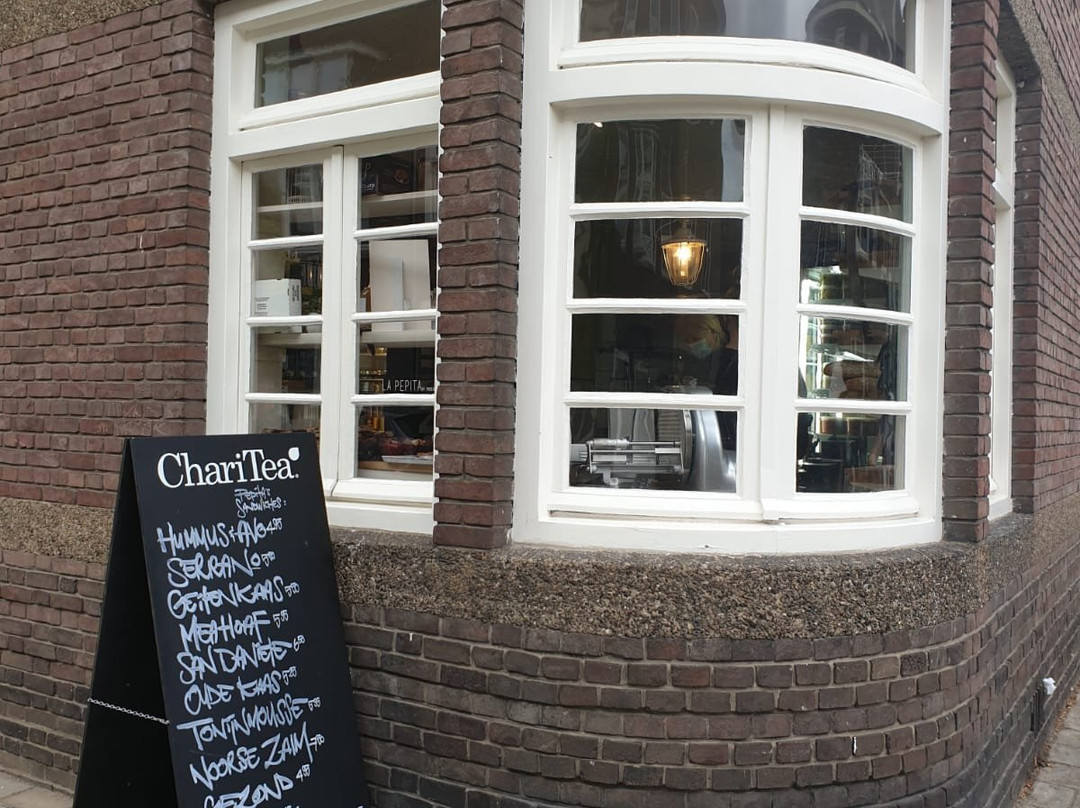 LA PEPITA
ChariTea
Pepita's
SANDWICHES:
HUMMUS + AVO 4.95
SERRANO
GEITENKAAS 5.50
MEATLOAF 5.95
SAN DANIELE
OUDE KAAS 5.25
TONIJNMOUSSE 5.95
NOORSE ZALM
GEZOND 4.95